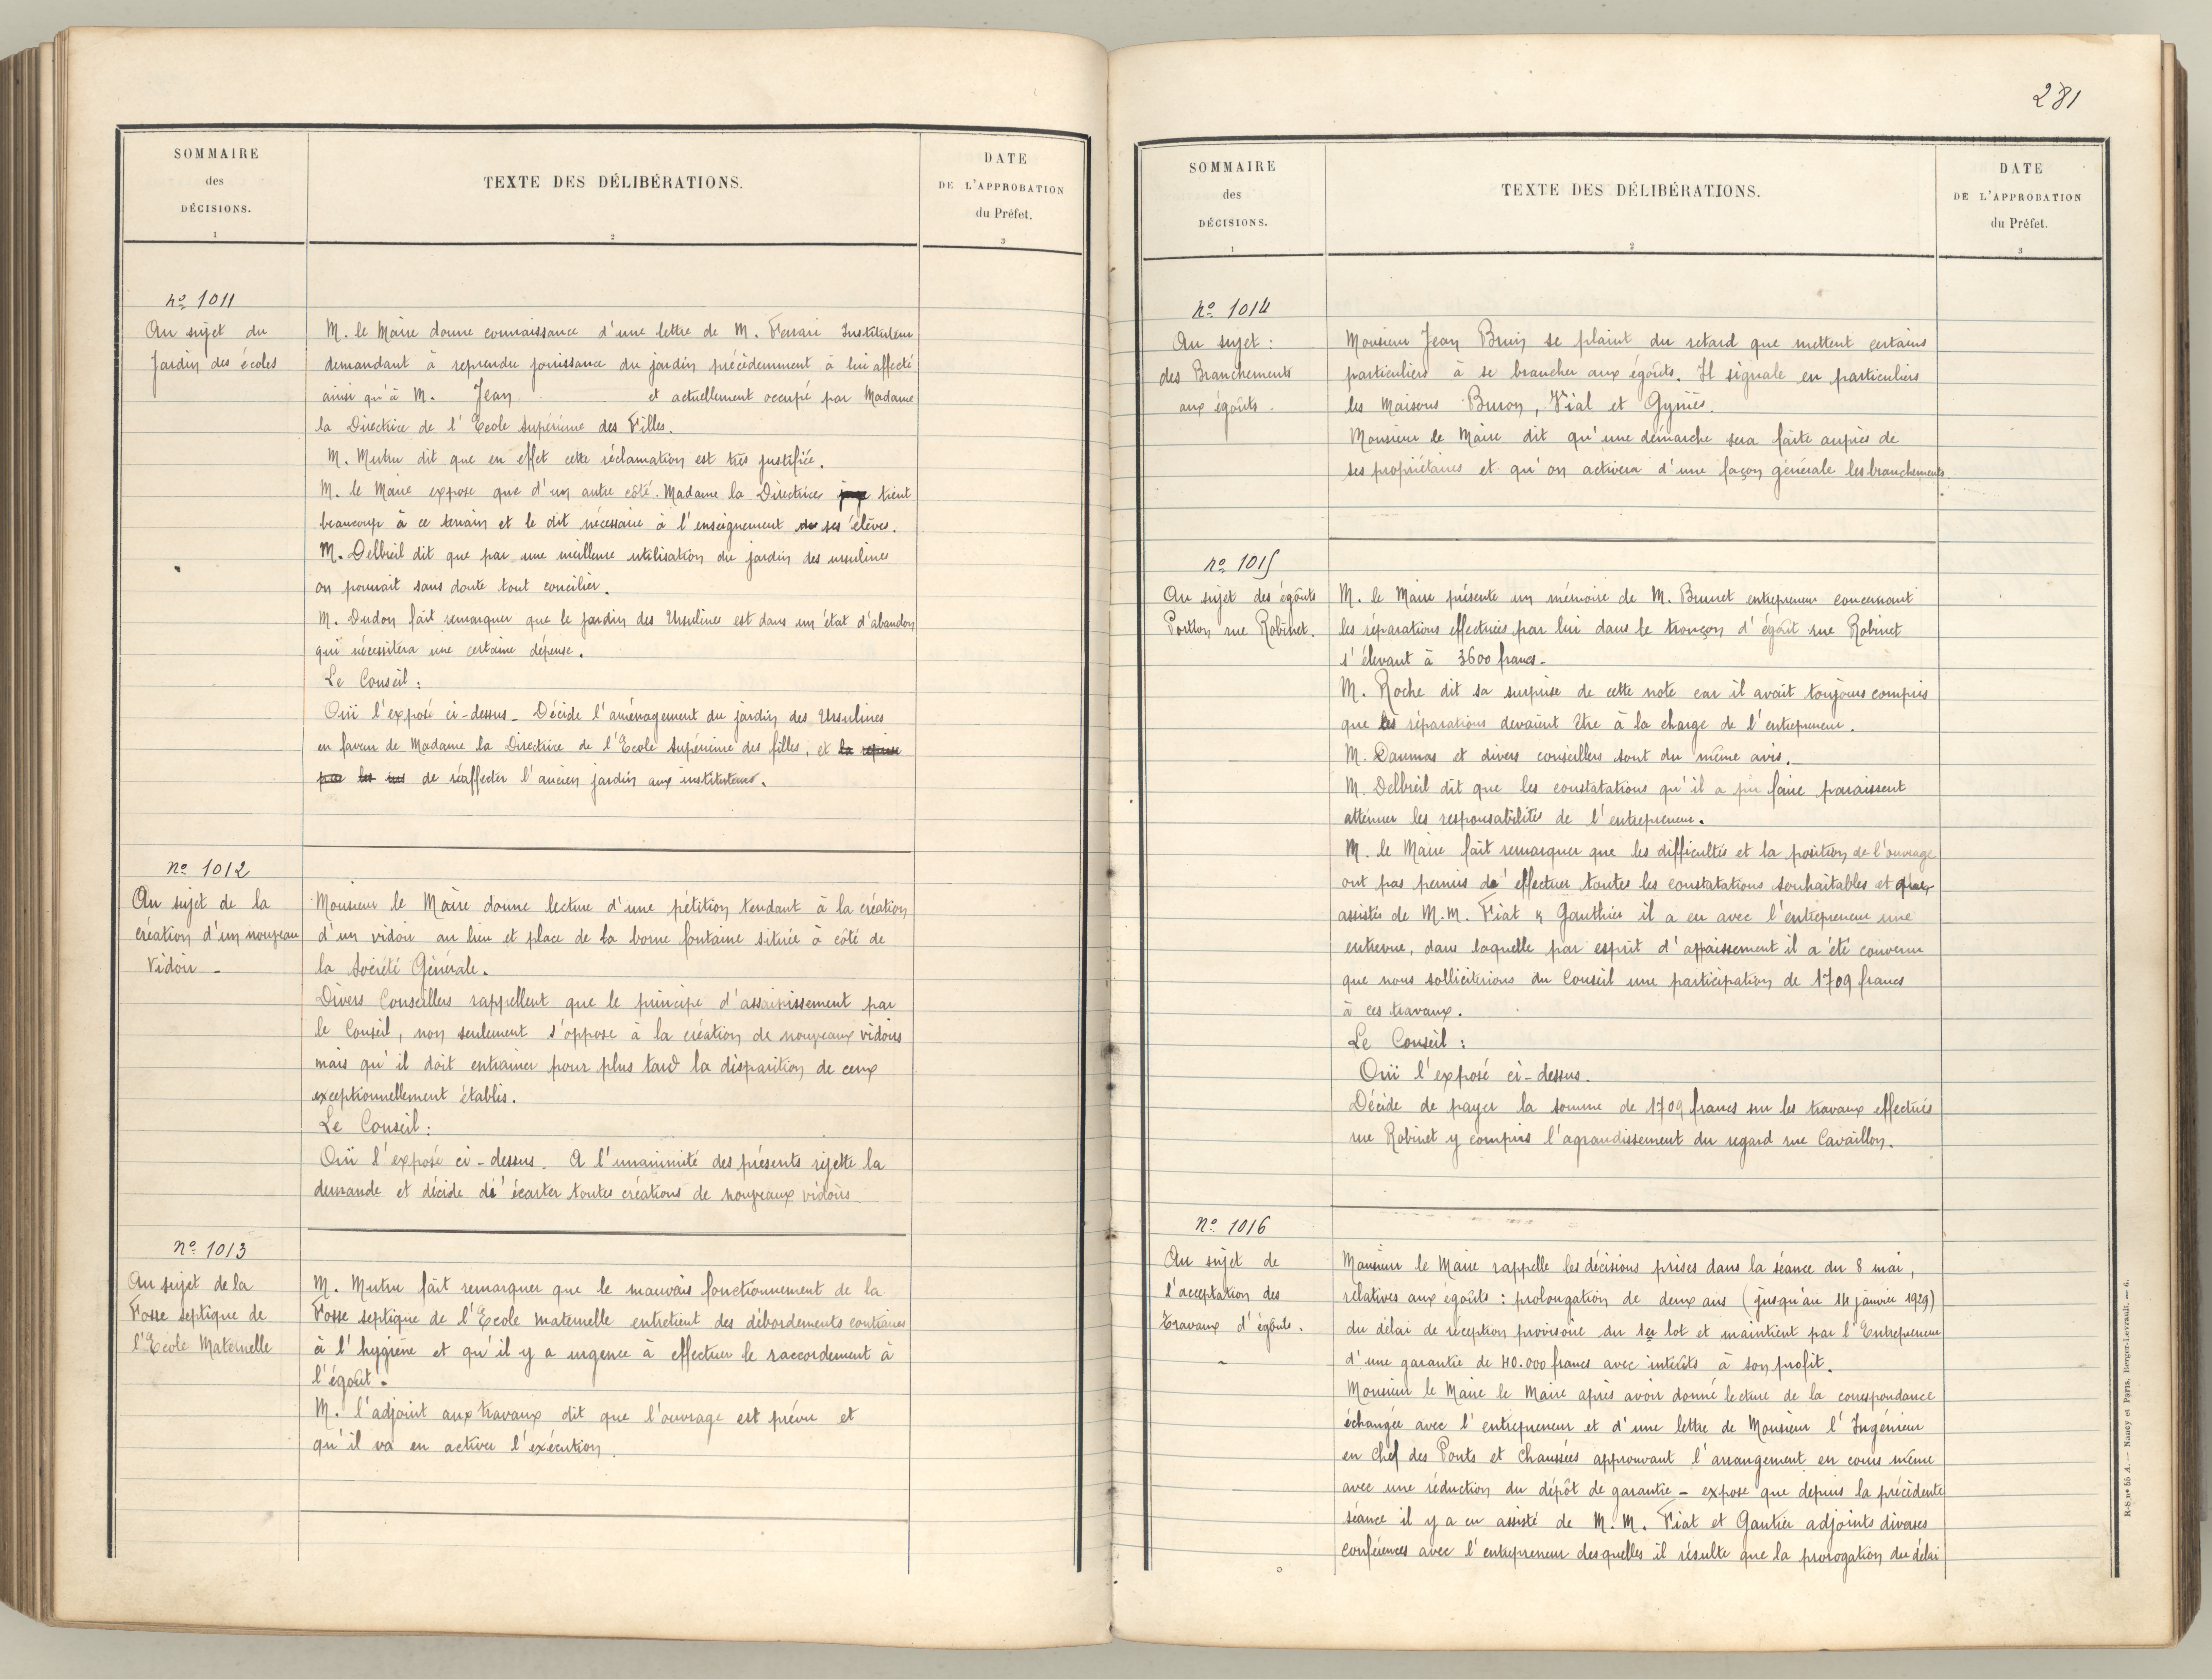 SOMMAIRE
des
DÉCISIONS.
1
TEXTE DES DÉLIBÉRATIONS.
2
DATE
DE L'APPROBATION
du Préfet.
3
nº 1011
Au sujet du
Jardin des écoles
M. le Maire donne connaissance d'une lettre de M. Ferrari Instituteur
demandant à reprendre jouissance du jardin précédemment à lui affecté
ainsi qu'à M. Jean et actuellement occupé par Madame
la Directrice de l'Ecole Supérieure des Filles.
M. Mutru dit que en effet cette réclamation est très justifiée.
M. le Maire expose que d'un autre côté. Madame la Directrice tient
beaucoup à ce terrain et le dit nécessaire à l'enseignement de ses élèves.
M. Delbreil dit que par une meilleure utilisation du jardin des ursulines
on pourrait sans doute tout concilier.
M. Dudon fait remarquer que le jardin des Ursulines est dans un état d'abandon
qui nécessitera une certaine dépense.
Le Conseil :
Ouï l'exposé ci-dessus_ Décide l'aménagement du jardin des Ursulines
en faveur de Madame la Directrice de l'Ecole Supérieure des filles, et la reprise
par les de réaffecter l'ancien jardin aux instituteurs.
nº 1012
Au sujet de la
création d'un nouveau
Vidoir _
Monsieur le Maire donne lecture d'une pétition tendant à la création
d'un vidoir au lieu et place de la borne fontaine située à côté de
la Société Générale.
Divers Conseillers rappellent que le principe d'assainissement par
le Conseil, non seulement s'oppose à la création de nouveaux vidoirs
mais qu'il doit entrainer pour plus tard la disparition de ceux
exceptionnellement établis.
Le Conseil :
Ouï l'exposé ci-dessus. A l'unanimité des présents rejette la
demande et décide d'écarter toutes créations de nouveaux vidoirs
nº 1013
Au sujet de la
Fosse septique de
l'Ecole Maternelle
M. Mutru fait remarquer que le mauvais fonctionnement de la
Fosse septique de l'Ecole maternelle entretient des débordements contraires
à l'hygiène et qu'il y a urgence à effectuer le raccordement à
l'égoût.
M. l'adjoint aux travaux dit que l'ouvrage est prévu et
qu'il va en activer l'exécution.
281
SOMMAIRE
des
DÉCISIONS.
1
TEXTE DES DÉLIBÉRATIONS.
2
DATE
DE L'APPROBATION
du Préfet.
3
nº 1014
Au sujet :
des Branchements
aux égoûts _
Monsieur Jean Bruin se plaint du retard que mettent certains
particuliers à se brancher aux égoûts. Il signale en particuliers
les Maisons Buron, Vial et Gyniès.
Monsieur le Maire dit qu'une démarche sera faite auprès de
ses propriétaires et qu'on activera d'une façon générale les branchements.
nº 1015
Au sujet des égoûts
Portion rue Robinet.
M. le Maire présente un mémoire de M. Brunet entrepreneur concernant
les réparations effectuées par lui dans le tronçon d'égoût rue Robinet
s'élevant à 3600 francs_
M. Roche dit sa surprise de cette note car il avait toujours compris
que les réparations devaient être à la charge de l'entrepreneur.
M. Daumas et divers conseillers sont du même avis.
M. Delbreil dit que les constatations qu'il a pu faire paraissent
atténuer les responsabilités de l'entrepreneur.
M. le Maire fait remarquer que les difficultés et la position de l'ouvrage
ont pas permis d'effectuer toutes les constatations souhaitables et
assistés de M.M. Fiat & Gauthier il a eu avec l'entrepreneur une
entrevue, dans laquelle par esprit d'appaissement il a été convenu
que nous solliciterions du Conseil une participation de 1709 francs
à ces travaux.
Le Conseil :
Ouï l'exposé ci-dessus.
Décide de payer la somme de 1709 francs sur les travaux effectués
rue Robinet y compris l'agrandissement du regard rue Cavaillon.
nº 1016
Au sujet de
l'acceptation des
Travaux d'égoûts.
Monsieur le Maire rappelle les décisions prises dans la séance du 8 mai,
relatives aux égoûts : prolongation de deux ans (jusqu'au 14 janvier 1929)
du délai de réception provisoire du 1er lot et maintient par l'Entrepreneur
d'une garantie de 40.000 francs avec intérêts à son profit.
Monsieur le Maire le Maire après avoir donné lecture de la correspondance
échangée avec l'entrepreneur et d'une lettre de Monsieur l'Ingénieur
en chef des Ponts et Chaussées approuvant l'arrangement en cours même
avec une réduction du dépôt de garantie _ expose que depuis la précédente
séance il y a eu assisté de M.M. Fiat et Gautier adjoints diverses
conférences avec l'entrepreneur desquelles il résulte que la prorogation du délai
R-S nº 55 A. — Nancy et Paris, Berger-Levrault. — 6.